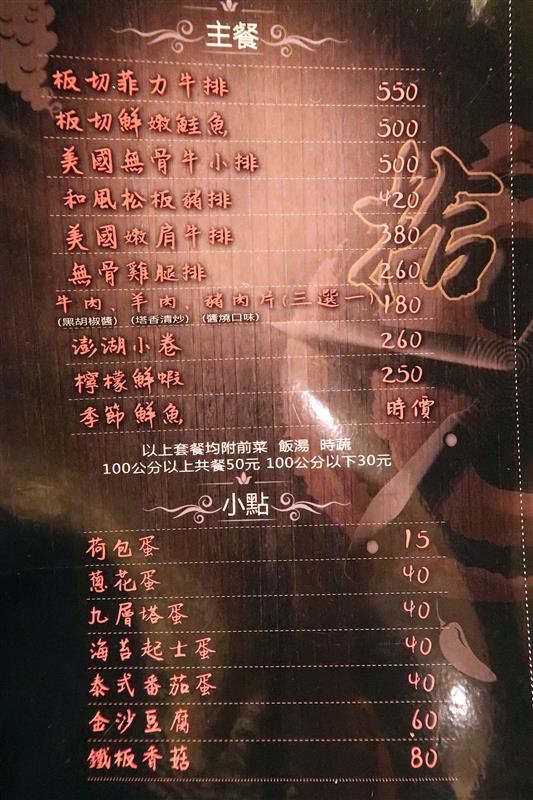 主餐
板切菲力牛排 550
板切鮮嫩鮭魚 500
美國無骨牛小排 500
和風松板豬排 420
美國嫩肩牛排 380
無骨雞腿排 260
牛肉、羊肉、豬肉片(三選一) 180
(黑胡椒醬) (塔香清炒) (醬燒口味)
澎湖小卷 260
檸檬鮮蝦 250
季節鮮魚 時價
以上套餐均附前菜 飯湯 時蔬
100公分以上共餐50元 100公分以下30元
小點
荷包蛋 15
蔥花蛋 40
九層塔蛋 40
海苔起士蛋 40
泰式番茄蛋 40
金沙豆腐 60
鐵板香菇 80